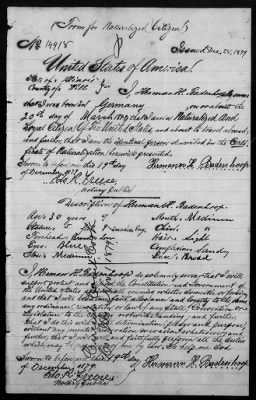 (Form for Naturalized Citizen)
No. 14918 Issued Dec. 23, 1879
United States of America.
State of Illinois
County of Will
I Herman H. Badenhoop
that I was born in Germany on or about the
20th day of March 1849, that I am a Naturalized and
Loyal Citizen of the United States, and about to travel abroad,
and further, that I am the identical person described in the Certi-
ficate of Naturalization herewith presented.
Sworn to before me this 19th day Herman H. Badenhoop
of December 1879
Notary Public
Description of Herman H. Badenhoop
Age: 30 years Mouth: Medium
Stature: 5 8 Chin:
Forehead: Hair: Light
Eyes: Blue Complexion: Sandy
Nose: Medium Face: Broad
I, Herman H. Badenhoop do solemnly swear that I will
support, protect and defend the Constitution and Government of
the United States against all enemies, whether domestic or foreign,
and that I will bear true faith, allegiance and loyalty to the same,
any ordinance, resolution or law of any State, Convention or
Legislature to the contrary notwithstanding; and further,
that I do this with a full determination, pledge and purpose,
without any mental reservation or evasion whatsoever; and
further, that I will well and faithfully perform all the duties
which may be required of me by law. So help me God.
Sworn to before me this 19th day
of December 1879 Herman H. Badenhoop
Notary Public